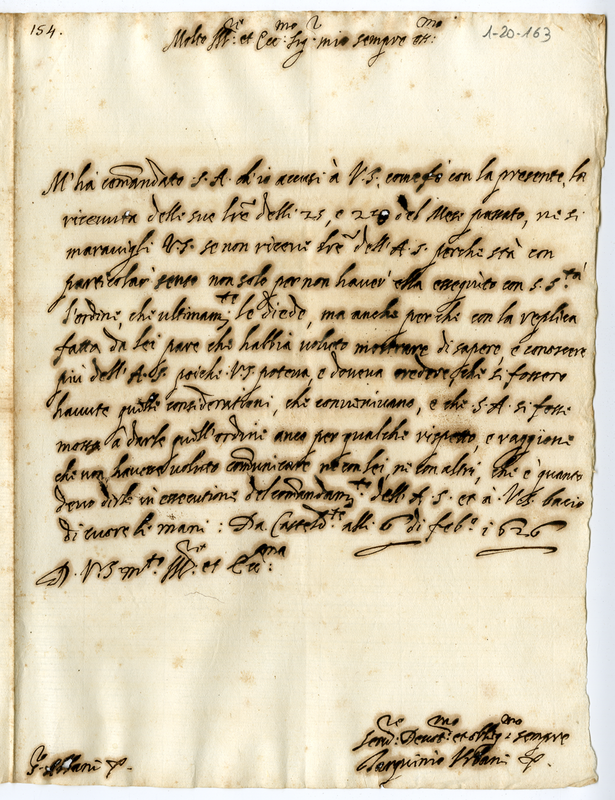 154.
1-20-163
Molto Ill.re et Ecc.mo Sig.r mio sempre oss.mo
M'ha comandato S.A. ch'io accusi à V.S. come fò con la presente, la
ricevuta delle sue l're delli 25, e 28 del Mese passato, ne si
maravigli V.S. se non riceve l're dell'A.S. perche stà con
particolar' senso non solo per non haver' ella esseguito con S.S.tà
l'ordine, che ultimam.te le diede, ma anche perche con la replica
fatta da lei pare che habbia voluto mostrare di sapere, e conoscere
più dell'A.S. poiche V.S. poteva, e doveva credere che si fossero
havute quelle considerationi, che convenivano, e che S.A. si fosse
mossa à darle quell'ordine anco per qualche rispetto, e raggione
che non havesse voluto comunicare ne con lei ne con altri, che è quanto
devo dirle in essecutione del comandam.to dell'A.S. et a V.S. bacio
di cuore le mani: Da Casteld.te alli 6 di feb.o 1626
D. V.S. m.to Ill.re et Ecc.ma
Ser.re Devot.mo et obblig.mo sempre
Tarquinio Urbani